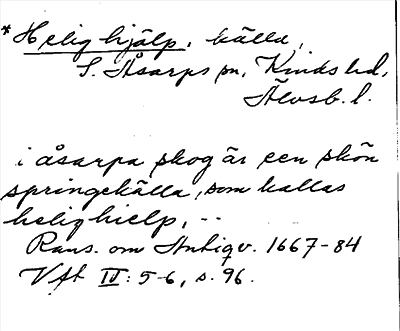 *Helig hjälp, källa,
S. Åsarps sn, Kinds hd,
Älvsb. l.
i åsarpa skog är een skön
springekälla, som kallas
helig hielp, --
Rans. om Antiqv. 1667-84
VAt II: 5-6, s. 96.